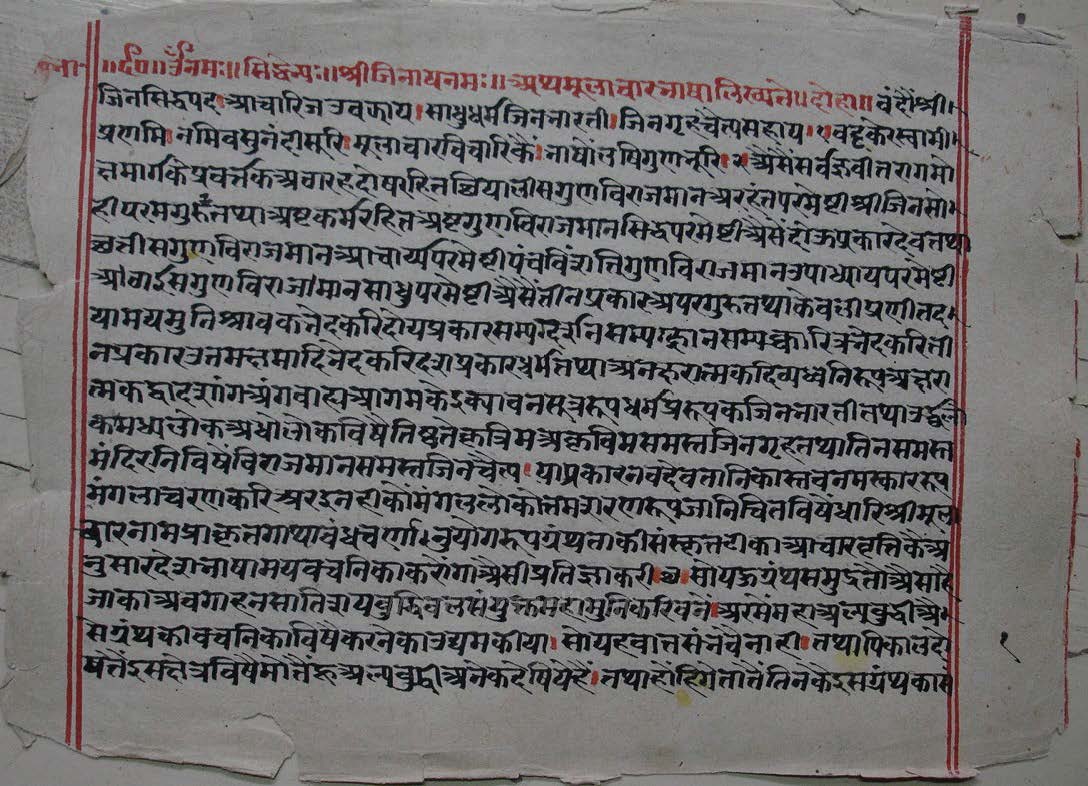 ॥र्द०॥ ॐ नमः॥ सिद्धेभ्यः॥ श्रीजिनायनमः॥ अथमूलाचारभाषालिख्यते॥ दोहा॥ वंदौंश्री
जिनसिद्धपद। आचारिजउवझाय। साधुधर्मजिनभारती। जिनगृहचैत्यसहाय।१ वट्टकेरस्वामी
प्रणमि। नमिवसुनंदीसूरि। मूलाचारविचारिकैं। भाषौंलषिगुणभूरि।२ अैसेंसर्वज्ञवीतरागमो
क्षमार्गकेप्रवर्त्तकअठारहदोषरहितछियालीसगुणविराजमानअरहंतपरमेष्टीश्रीजिनसो
हीपरमगुरुतथाअष्टकर्मरहितअष्टगुणविराजमानसिद्धपरमेष्टीअैसेंदोऊप्रकारदेवतथा
छत्तीसगुणविराजमानआचार्यपरमेष्टीपंचविंशतिगुणविराजमानउपाध्यायपरमेष्टी
अठाईसगुणविराजमानसाधुपरमेष्टीअैसेंतीनप्रकारअपरगुरुतथाकेवलीप्रणीतद
यामयमुनिश्रावकभेदकरिदोयप्रकारसम्यग्दर्शनसम्यग्ज्ञानसम्यक्चारित्रभेदकरिती
नप्रकारउत्तमक्षमादिभेदकरिदशप्रकारधर्मतथाअनक्षरात्मकदिव्यध्वनिरूपअक्षरा
त्मकद्वादशांगअंगवाह्यआगमकेइक्यावनसूत्ररूपधर्मप्ररूपकजिनभारतीतथाउर्द्धलो
कमध्यलोकअधोलोकविषेंतिष्ठतेकृत्रिमअकृत्रिमसमस्तजिनगृहतथातिनसमस्त
मंदिरनिविषेंविराजमानसमस्तजिनचैत्य। याप्रकारनवदेवतानिकास्तवननमस्काररूप
मंगलाचरणकरिअरइनहीकौमंगललोकोत्तमशरणरूपजानिचितविषेंधारिश्रीमूला
चारनामप्राकृतगाथाबंधचर्णानुयोगरूपग्रंथताकीसंस्कृतटीकाआचारवृत्तिकैअ
नुसारदेशभाषामयवचनिकाकरौंगाअैसीप्रतिज्ञाकरी। सोयहग्रंथसमुद्रतोअैसाहै
जाकाअवगाहनसातिशयबुद्धिबलसंयुक्तमहामुनिकरिबनें। अरमेंमहाअल्पबुद्धीअै
सेग्रंथकीवचनिकाविषेकरनेकाउद्यमकीया। सोयहवातसंभवैनाही। तथापिकालदो
षतेंइसक्षेत्रविषेमोतेंहूअल्पबुद्धीअनेकदेषियेहैं। तथाहोंहिगेतातेंतिनकेइसग्रंथकास